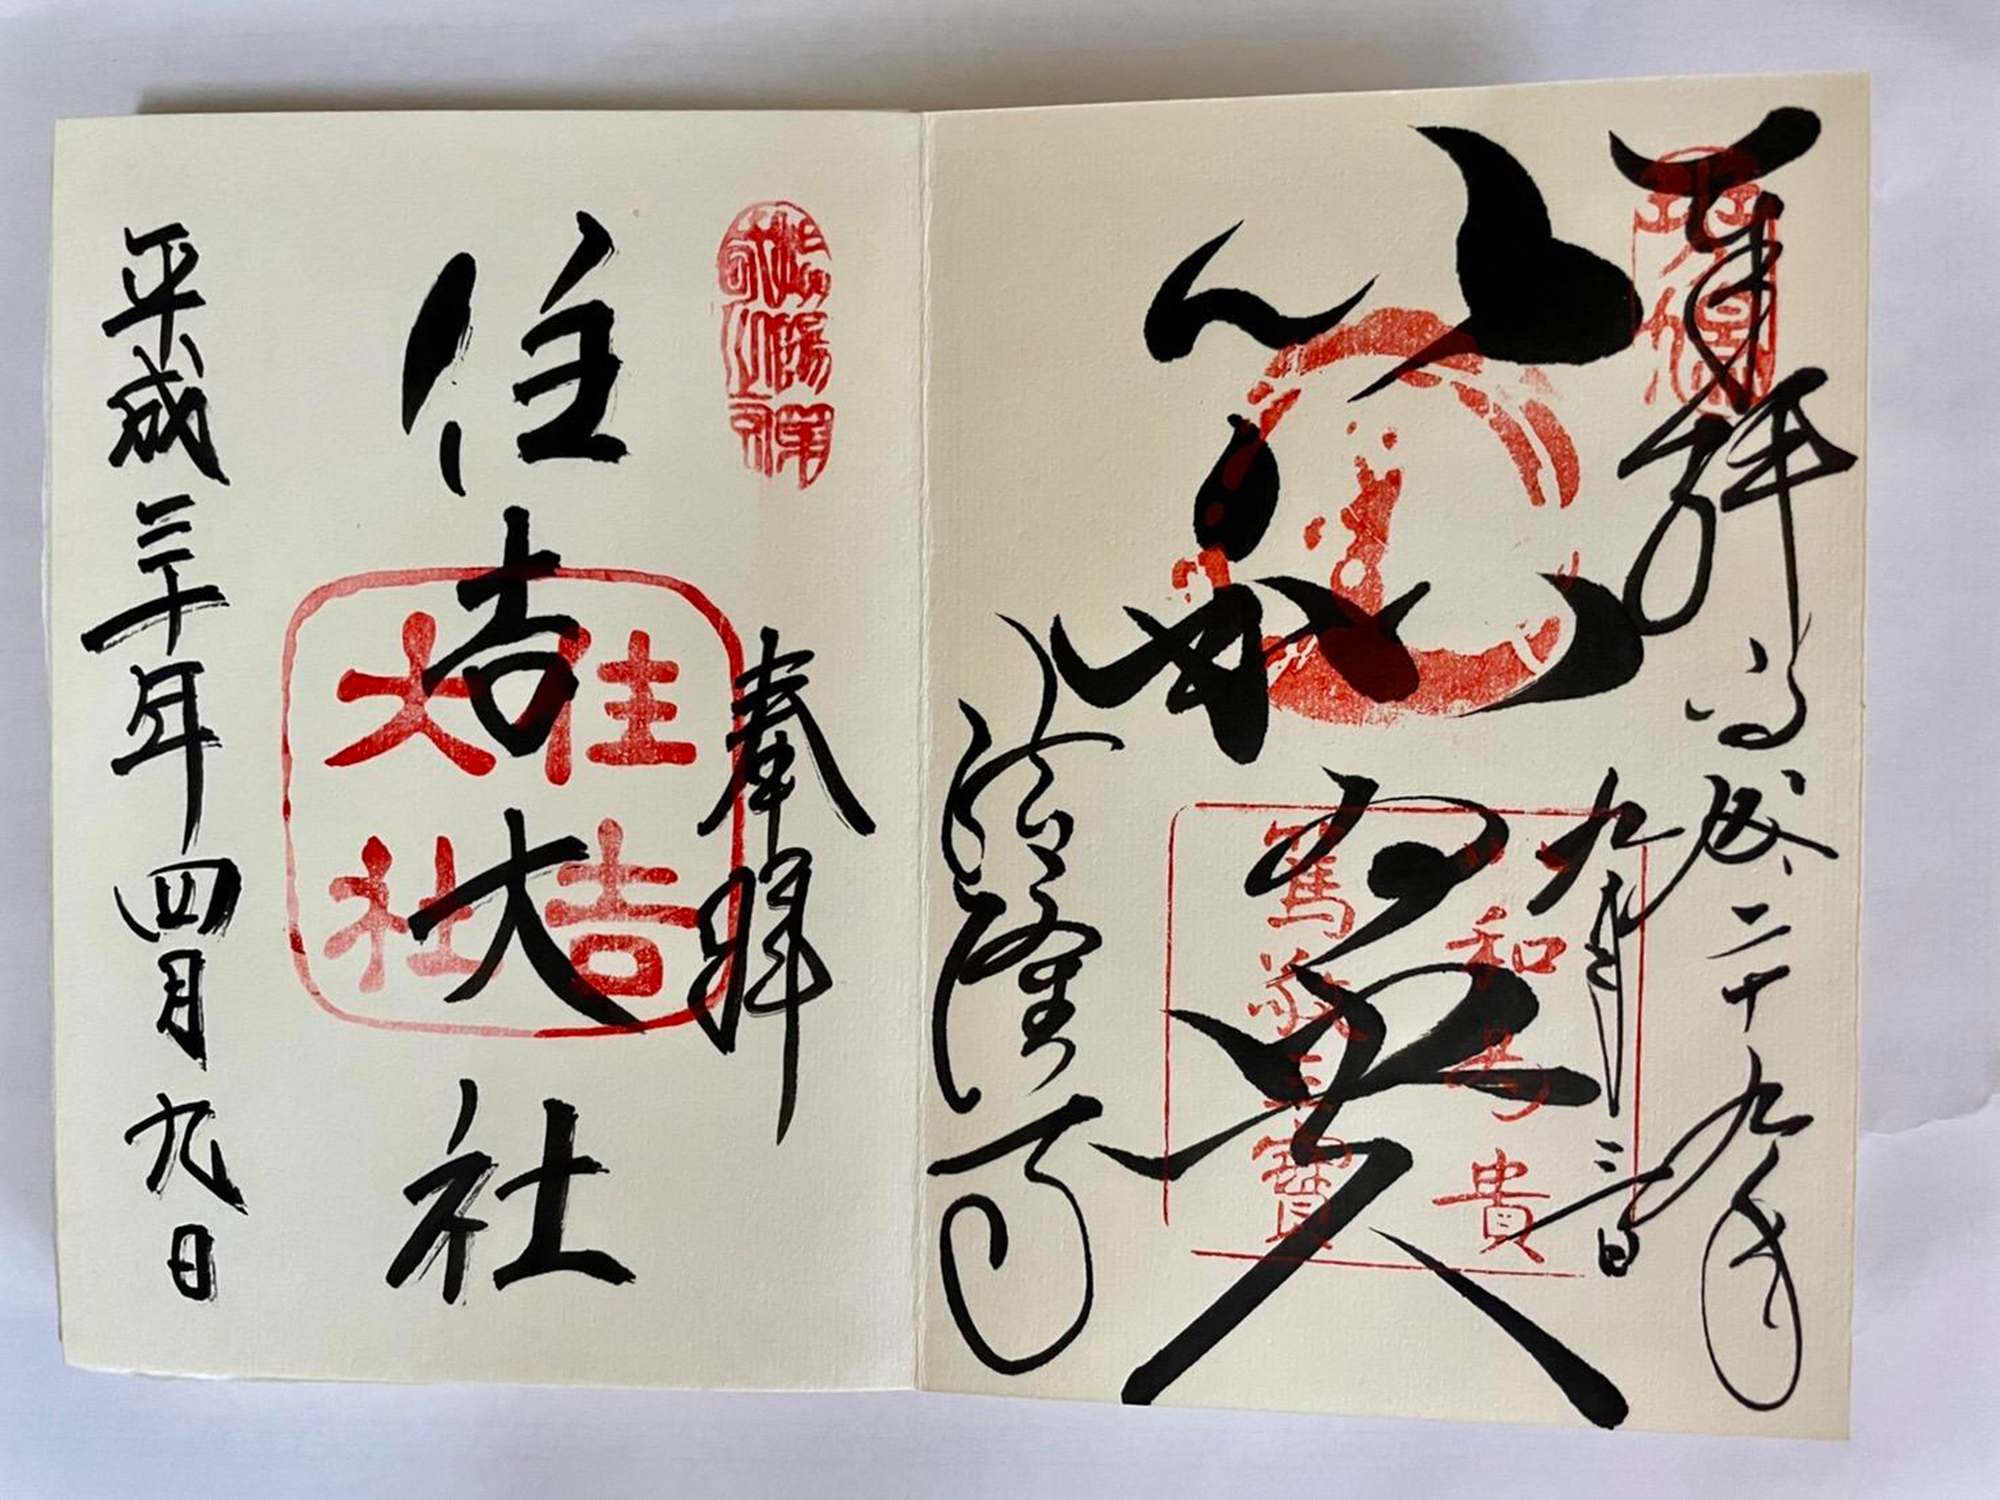 奉拝
平成二十九年
九月三日
以和為貴
以和為貴
篤敬三寶
法隆寺
奉拝
住吉大社
住吉
大社
平成三十年四月九日